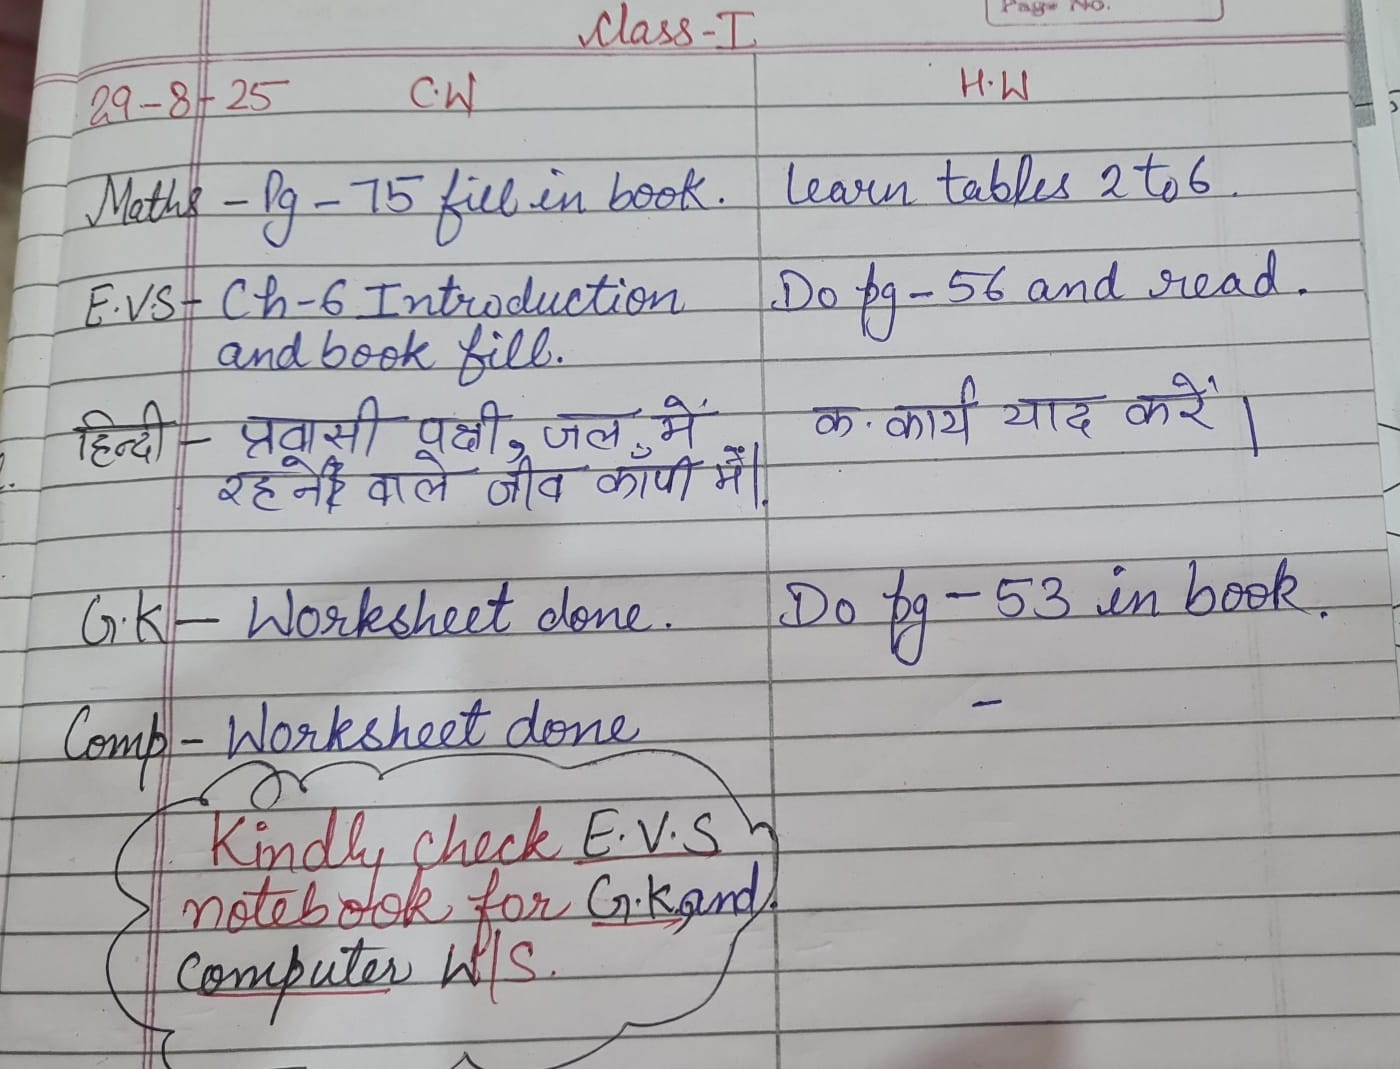 Page No.
Class-I
29-8-25 C.W H.W
Maths - Pg - 75 fill in book. Learn tables 2 to 6.
E.VS - Ch-6 Introduction Do pg - 56 and read.
and book fill.
हिन्दी - प्रवासी पक्षी, जल में क. कार्य याद करें।
रहने वाले जीव कॉपी में।
G.K - Worksheet done. Do pg - 53 in book.
Comp - Worksheet done -
Kindly check E.V.S
notebook for G.K and
Computer W/S.